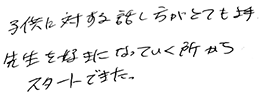 子供に対する話し方がとても上手
先生を好きになっていく所から
スタートできた。